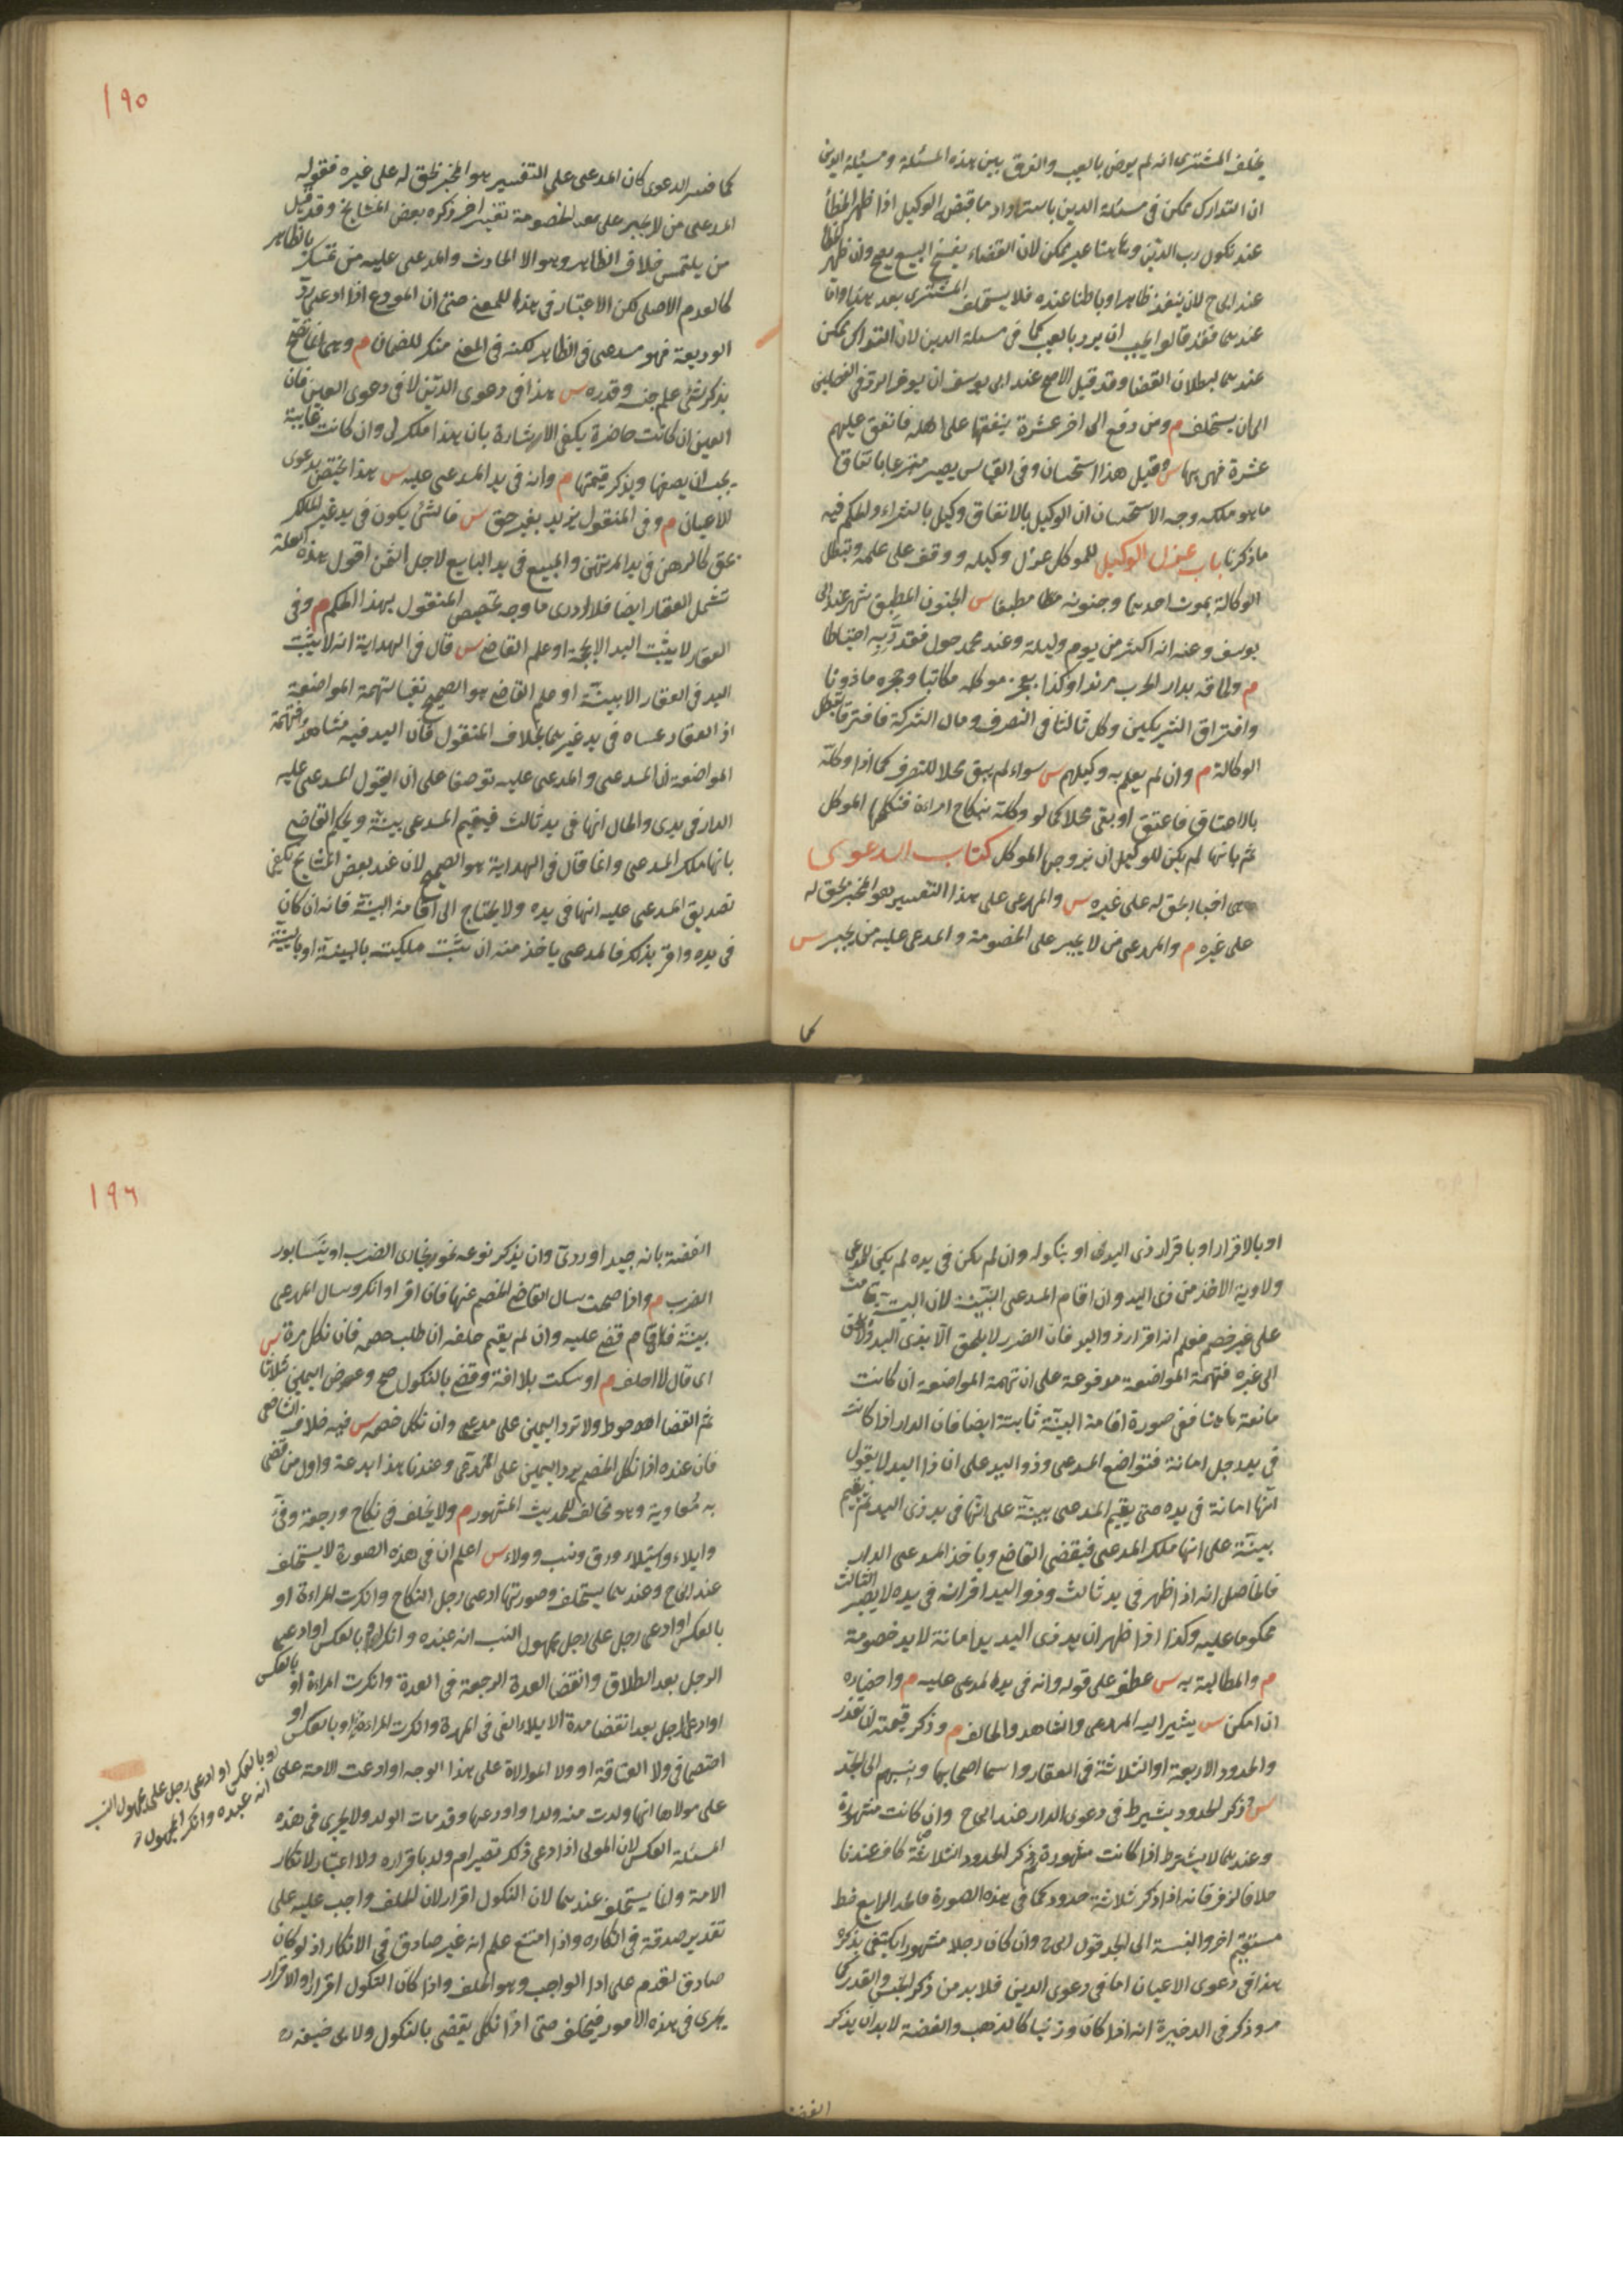 يحلف المشترى انه لم يرض بالعيب والفرق بين هذه المسئلة ومسئلة الدين
ان التدارك ممكن فى مسئلة الدين باسترداد ما قبضه الوكيل اذا ظهر الخطأ
عند نكول رب الدين وهاهنا غير ممكن لان القضاء بفسخ البيع يصح وان ظهر الخطأ
عند ابى ح لانه ينفذ ظاهرا وباطنا عنده فلا يستحلف المشترى بعد هذا واما
عندهما فقد قالوا يجب ان يرد بالعيب كما فى مسئلة الدين لان التدارك ممكن
عندهما لبطلان القضا وقد قيل الاصح عند ابى يوسف ان يؤخر الرد فى الفصلين
الى ان يستحلف م ومن دفع الى اخر عشرة ينفقها على اهله فانفق عليهم
عشرة فهى بها س وقيل هذا استحسان وفى القياس يصير متبرعا بانفاق
ما هو ملكه وجه الاستحسان ان الوكيل بالانفاق وكيل بالشراء والحكم فيه
ما ذكرنا باب عزل الوكيل للموكل عزل وكيله ووقف على علمه وتبطل
الوكالة بموت احدهما وجنونه مطبقا س الجنون المطبق شهر عند ابى
يوسف وعنه انه اكثر من يوم وليلة وعند محمد حول فقدر به احتياطا
م ولحاقه بدار الحرب مرتدا وكذا بعجز موكله مكاتبا وحجره ماذونا
وافتراق الشريكين وكل ثالثا فى التصرف ومال الشركة فافترقا تبطل
الوكالة م وان لم يعلم به وكيلهم س سواء لم يبق محلا للتصرف كما اذا وكله
بالاعتاق فاعتق او بقى محلا كما لو وكله بنكاح امراءة فنكحها الموكل
ثم بانها لم يكن للوكيل ان يزوجها الموكل كتاب الدعوى
هى اخبار بحق له على غيره س والمدعى على هذا التفسير هو المخبر بحق له
على غيره م والمدعى من لا يجبر على الخصومة والمدعى عليه من يجبر س
كما
١٩٥
كما فسر الدعوى كان المدعى على التفسير هو المخبر بحق له على غيره فقوله
المدعى من لا يجبر على بعد الخصومة تفسير اخر ذكره بعض المشايخ وقد قيل
من يلتمس خلاف الظاهر وهو الامر الحادث والمدعى عليه من تمسك بالظاهر
كالعدم الاصلى لكن الاعتبار فى هذا للمعنى حتى ان المودع اذا ادعى رد
الوديعة فهو مدعى فى الظاهر لكنه فى المعنى منكر للضمان م وهى انما تصح
بذكر شئ علم جنسه وقدره س هذا فى دعوى الدين لا فى دعوى العين فان
العين ان كانت حاضرة يكفى الاشارة بان هذا ملك لى وان كانت غايبة
يجب ان يصفها ويذكر قيمتها م وانه فى يد المدعى عليه س هذا يختص بدعوى
الاعيان م وفى المنقول يزيد بغير حق س فالشئ يكون فى يد غير المالك
بحق كالرهن فى يد المرتهن والمبيع فى يد البايع لاجل الثمن اقول هذه العلة
تشمل العقار ايضا فلا ادرى ما وجه تخصيص المنقول بهذا الحكم م وفى
العقار لا يثبت اليد الا بحجة او علم القاضى س قال فى الهداية انه لا يثبت
اليد فى العقار الا ببينة او علم القاضى هو الصحيح نفيا لتهمة المواضعة
اذ العقار عساه فى يد غيرهما بخلاف المنقول فان اليد فيه مشاهد فتهمة
المواضعة ان المدعى والمدعى عليه تواضعا على ان يقول المدعى عليه
الدار فى يدى والحال انها فى يد ثالث فيقيم المدعى بينة ويحكم القاضى
بانها ملك المدعى وانما قال فى الهداية هو الصحيح لان عند بعض المشايخ يكفى
تصديق المدعى عليه انها فى يده ولا يحتاج الى اقامة البينة فانه ان كان
فى يده واقر بذلك فالمدعى ياخذ منه ان يثبت ملكيته بالبينة او بالبينة
او بالاقرار او باقرار ذى اليد او بنكوله وان لم يكن فى يده لم يكن للمدعى
ولاية الاخذ من ذى اليد وان اقام المدعى البينة لان البينة قامت
على غير خصم فعلم ان اقرار ذو اليد فان الضرر لا يلحق الا بذى اليد ولا يلحق
الى غيره فتهمة المواضعة مدفوعة على ان تهمة المواضعة ان كانت
مانعة هاهنا ففى صورة اقامة البينة ثابتة ايضا فان الدار اذا كانت
فى يد رجل امانة فتواضع المدعى وذو اليد على ان ذا اليد لا يقول
انها امانة فى يده حتى يقيم المدعى ببينة على انها فى يد ذى اليد ثم يقيم
بينة على انها ملك المدعى فيقضى القاضى وياخذ المدعى الدار
فالحاصل انه اذا ظهر فى يد ثالث وذو اليد اقر انه فى يده لا يصير الثالث
محكوما عليه وكذا اذا ظهر ان يد ذى اليد يد امانة لا يد خصومة
م والمطالبة به س عطف على قوله وانه فى يد المدعى عليه م واحضاره
ان امكن س يشير اليه المدعى والشاهد والحالف م وذكر قيمته ان تعذر
والحدود الاربعة او الثلاثة فى العقار واسما اصحابها وينسبهم الى الجد
س ذكر الحدود يشترط فى دعوى الدار عند ابى ح وان كانت مشهورة
وعندهما لا يشترط اذا كانت مشهورة ثم ذكر الحدود الثلاثة كاف عندنا
خلافا لزفر فانه اذا ذكر ثلاثة حدود كما فى هذه الصورة فالحد الرابع خط
مستقيم اخر والنسبة الى الجد قول ابى ح وان كان رجلا مشهورا يكتفى بذكره
هذا فى دعوى الاعيان اما فى دعوى الدين فلا بد من ذكر الجنس والقدر كما
مر وذكر فى الذخيرة انه اذا كان وزنيا كالذهب والفضة لا بد ان يذكر
الفضة
١٩٦
الفضة بانه جيد او ردئ وان يذكر نوعه نحو بخارى الضرب او نيسابور
الضرب م واذا صحت سال القاضى الخصم عنها فان اقر او انكر وسال المدعى
بينة فاقام قضى عليه وان لم يقم حلفه ان طلب خصمه فان نكل مرة س
اى قال لا احلف م او سكت بلا افة وقضى بالنكول صح وعرض اليمين ثلاثا
ثم القضا احوط ولا ترد اليمين على مدعى وان نكل خصمه س فيه خلاف الشافعى
فان عنده اذا نكل الخصم يرد اليمين على المدعى وعندنا هذا بدعة واول من قضى
به معاوية وهو مخالف للحديث المشهور م ولا يحلف فى نكاح ورجعة وفئ
وايلاء واستيلاد ورق ونسب وولاء س اعلم ان فى هذه الصورة لا يستحلف
عند ابى ح وعندهما يستحلف وصورتها ادعى رجل النكاح وانكرت المراءة او
بالعكس او ادعى رجل على رجل مجهول النسب انه عبده وانكر او بالعكس او ادعى
الرجل بعد الطلاق وانقضا العدة الرجعة فى العدة وانكرت المراءة او بالعكس
او ادعى الرجل بعد انقضا مدة الايلاء الفى فى المدة وانكرت المراءة او بالعكس او
اختصما فى ولا العتاقة او ولا الموالاة على هذا الوجه او ادعت الامة على
على مولاها انها ولدت منه ولدا وادعاه وقد مات الولد ولا يجرى فى هذه
المسئلة العكس لان المولى اذا ادعى ذلك تصير ام ولد باقراره ولا اعتبار لانكار
الامة وانما يستحلف عندهما لان النكول اقرار لان الحلف واجب عليه على
تقدير صدقه فى انكاره واذا امتنع علم انه غير صادق فى الانكار اذ لو كان
صادق لقدم على ادا الواجب وهو الحلف واذا كان النكول اقرارا والاقرار
يجرى فى هذه الامور فيحلف حتى اذا نكل يقضى بالنكول ولابى حنيفة رح
او بالعكس او ادعى رجل على مجهول النسب
انه عبده وانكر المجهول